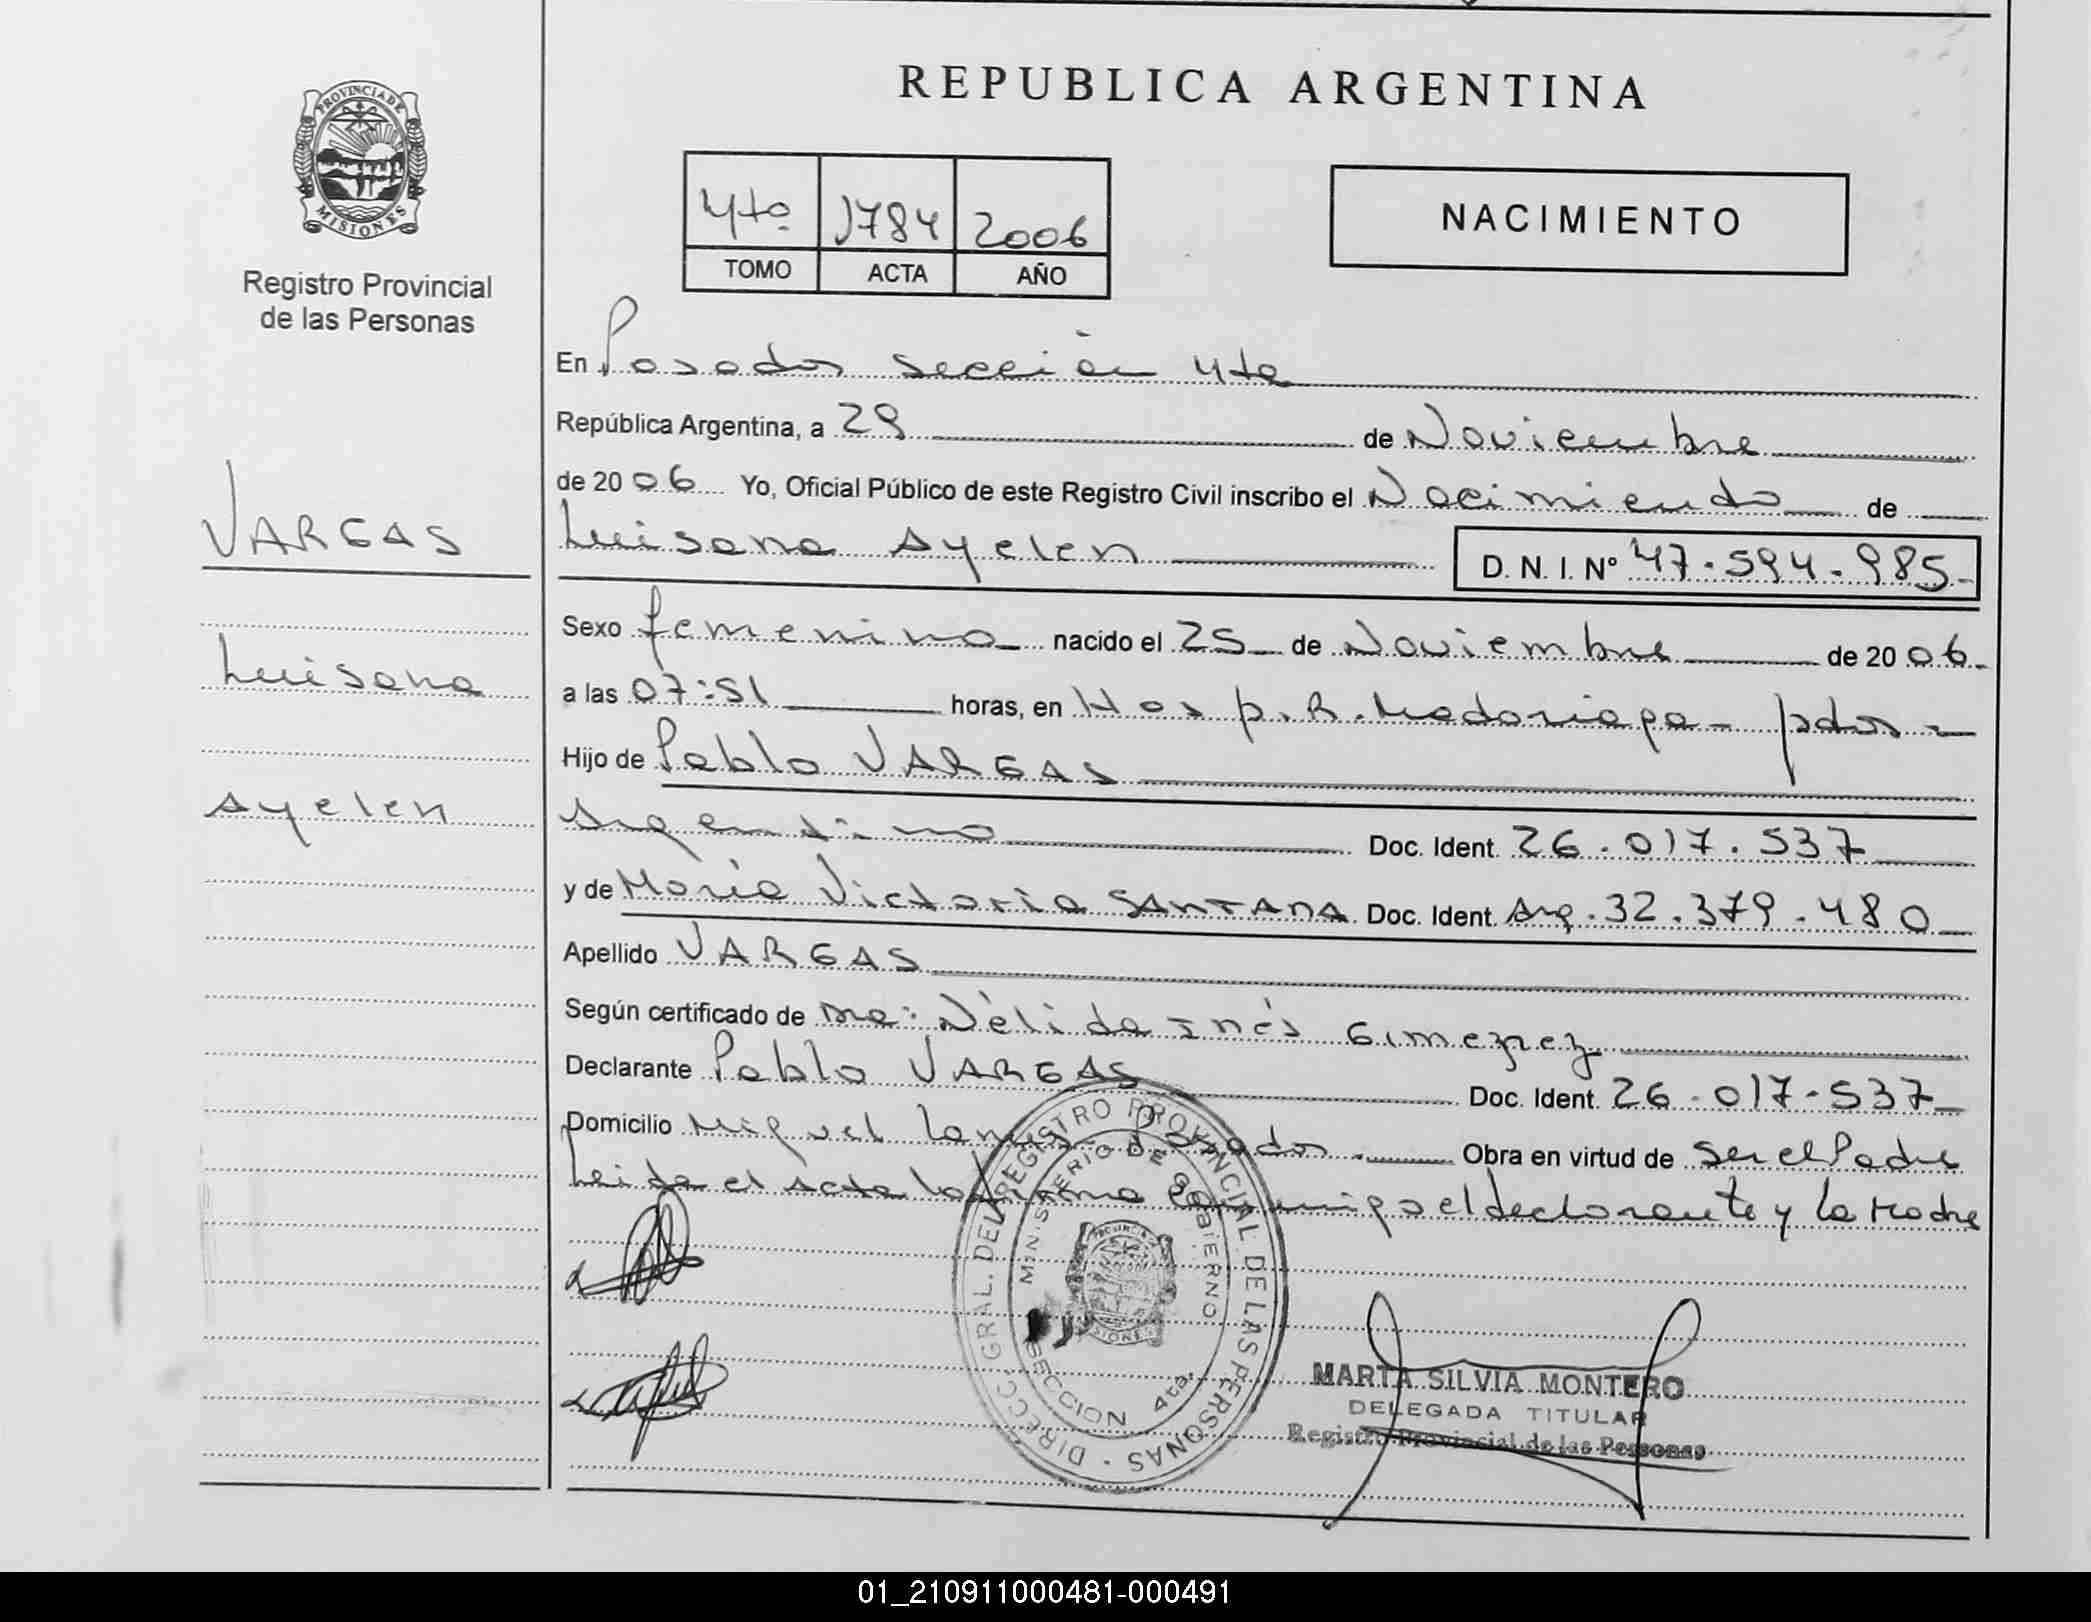 REPUBLICA ARGENTINA
PROVINCIA DE MISIONES
Registro Provincial
de las Personas
4to 1784 2006
TOMO ACTA AÑO
NACIMIENTO
En Posadas sección 4ta
República Argentina, a 29 de Noviembre
de 2006 Yo, Oficial Público de este Registro Civil inscribo el Nacimiento de
VARGAS
Luisana Ayelen D. N. I. Nº 47.594.985-
Sexo femenino nacido el 25 de Noviembre de 2006-
Luisana
a las 07:51 horas, en Hosp. R. Madariaga - pdas -
Hijo de Pablo VARGAS
Ayelen
Argentino Doc. Ident. 26.017.537
y de María Victoria SANTANA Doc. Ident. Arg. 32.379.480
Apellido VARGAS
Según certificado de Dra: Nélida Inés
Declarante Pablo VARGAS Doc. Ident. 26.017.537
Domicilio Miguel Lanus - Posadas Obra en virtud de ser el Padre
Leida el Acta la firma conmigo el declarante y la Madre
DIRECC. GRAL. DEL REGISTRO PROVINCIAL DE LAS PERSONAS
MINISTERIO DE GOBIERNO
SECCION 4ta.
MARTA SILVIA MONTERO
DELEGADA TITULAR
Registro Provincial de las Personas
01_210911000481-000491